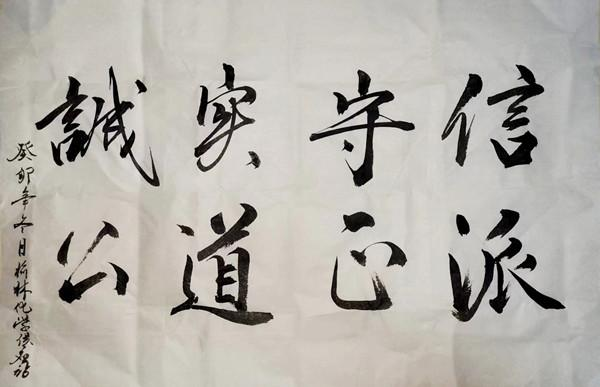 誠实守信
公道正派
癸卯年冬日